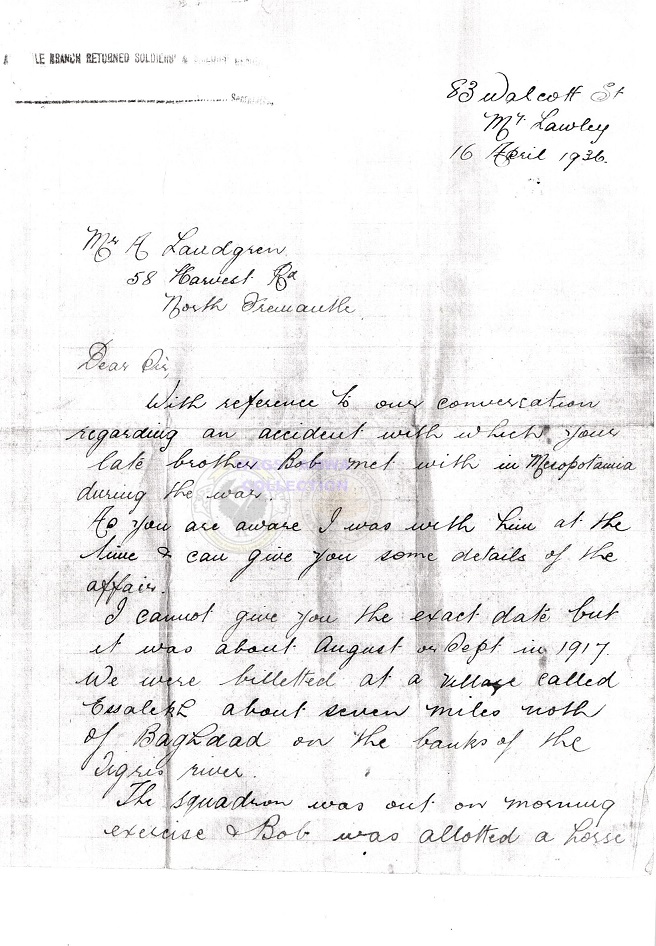 LE BRANCH RETURNED SOLDIERS' &
83 Walcott St
Mt. Lawley
16 April 1936.
Mr A Landgren
58 Harvest Rd
North Fremantle
Dear Sir,
With reference to our conversation
regarding an accident with which your
late brother Bob met with in Mesopotamia
during the war.
As you are aware I was with him at the
time & can give you some details of the
affair.
I cannot give you the exact date but
it was about August or Sept in 1917.
We were billetted at a village called
Essalekh about seven miles noth
of Baghdad on the banks of the
Tigris river.
The squadron was out on morning
exercise & Bob was allotted a horse
COLLECTION